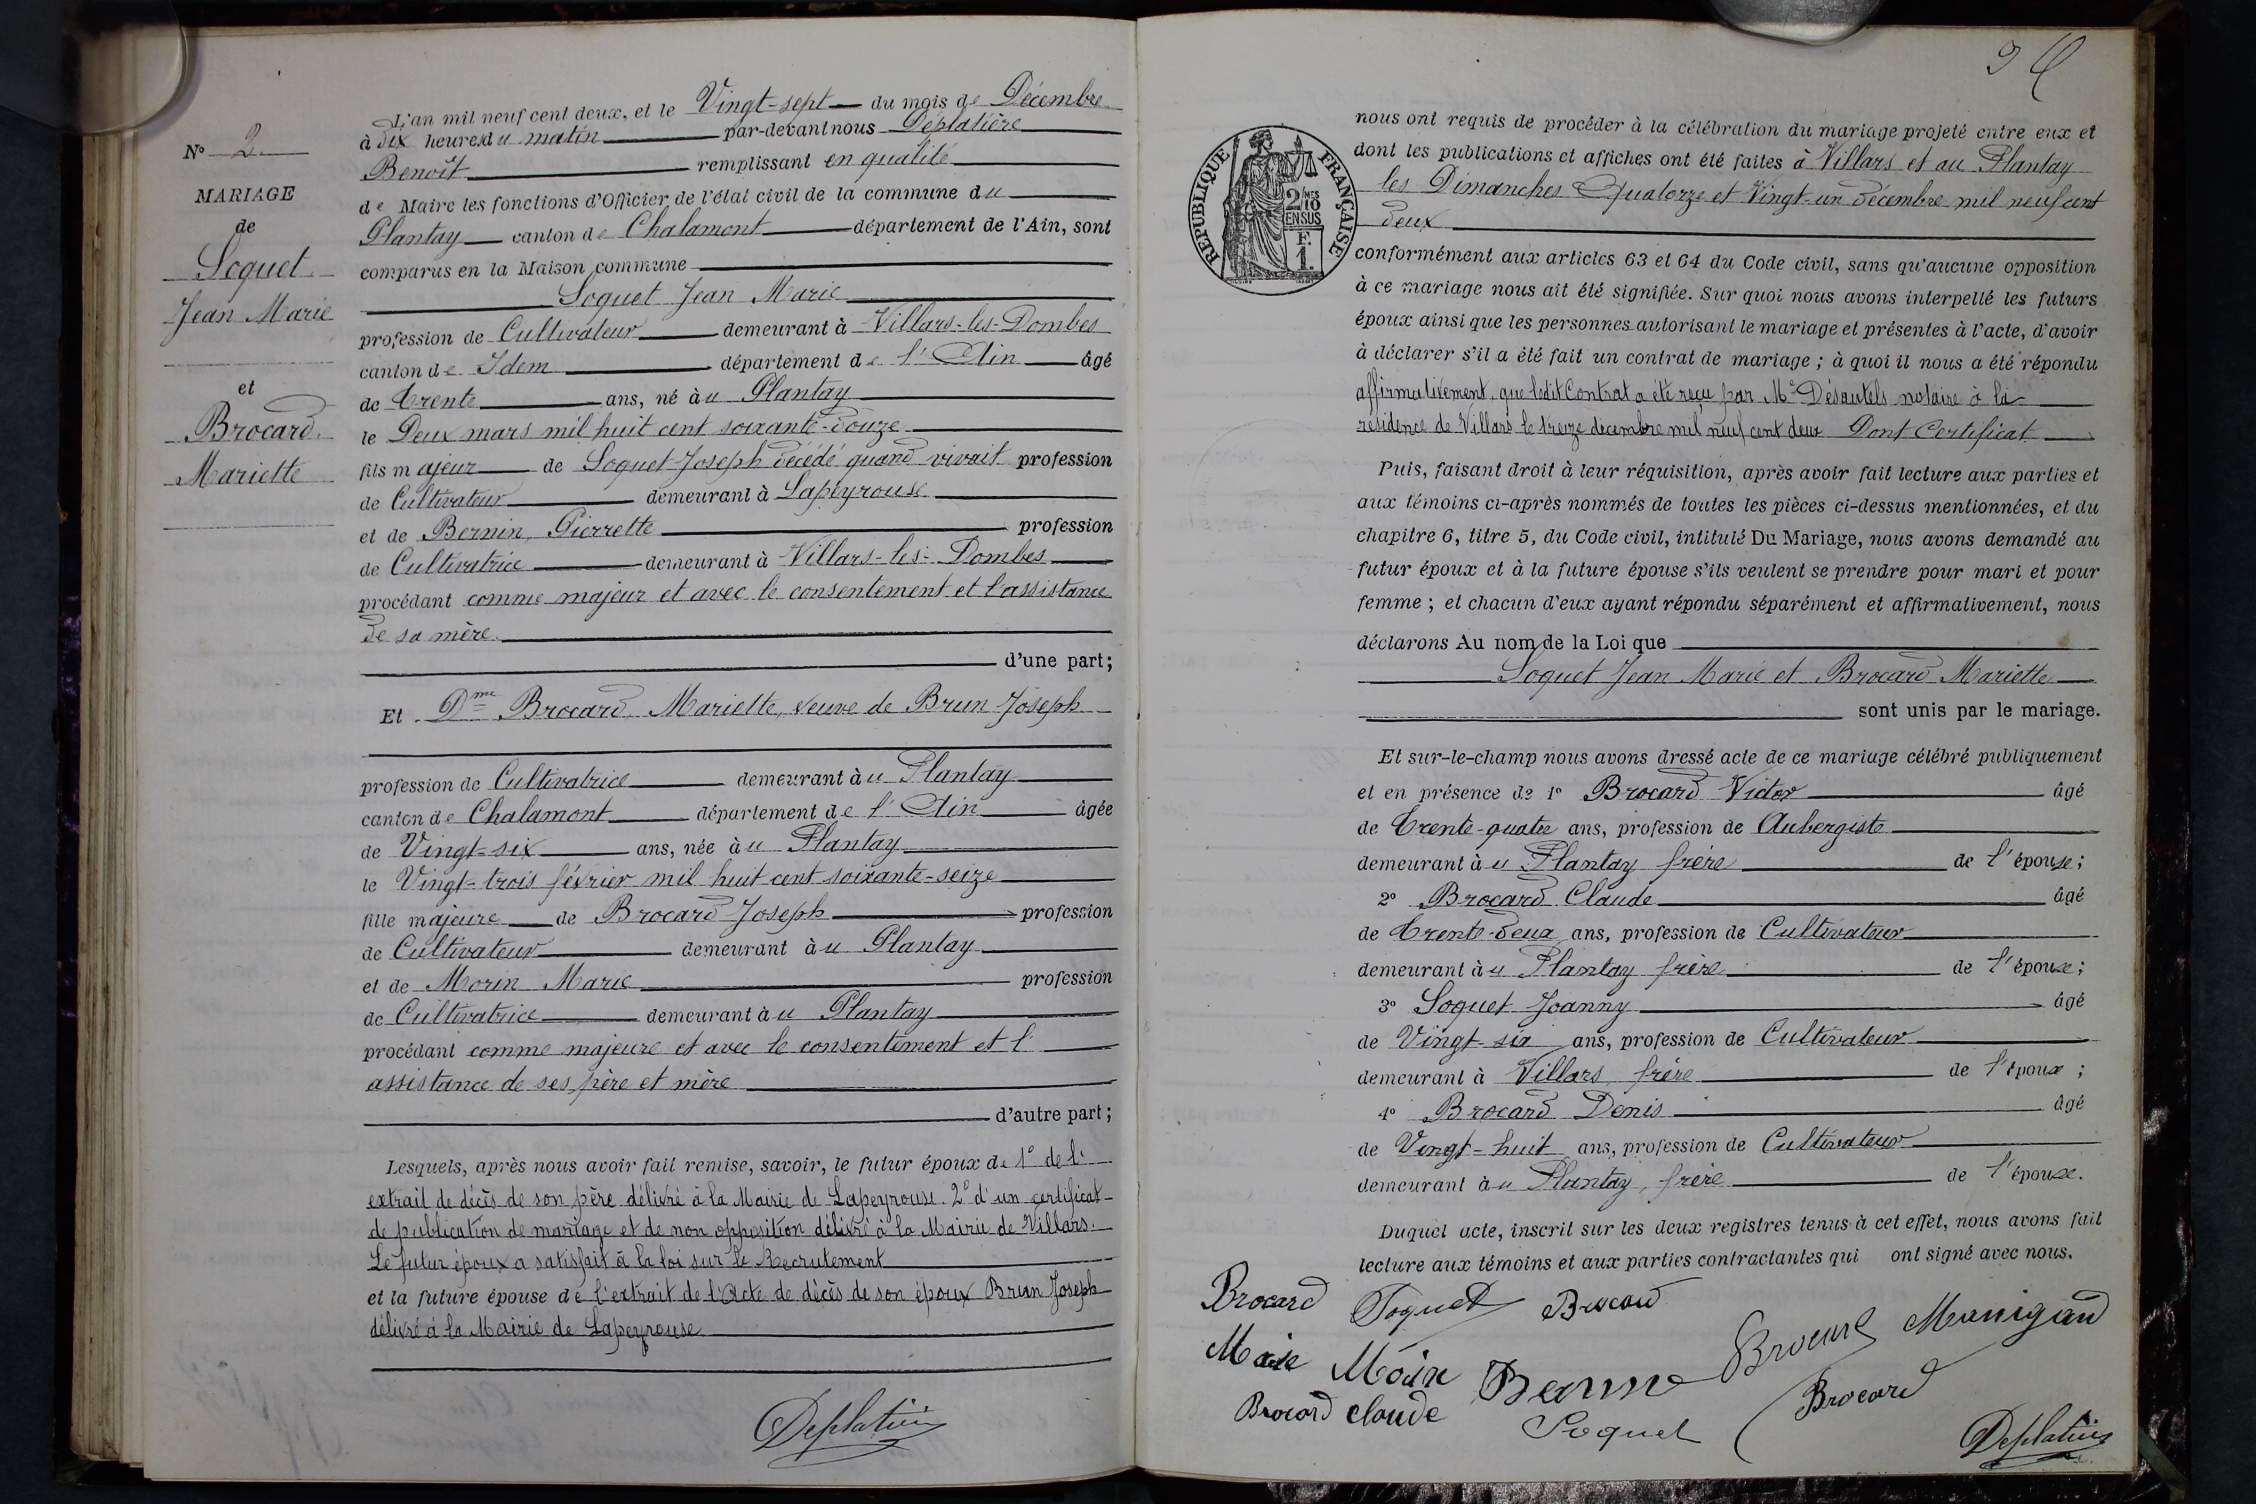 L'an mil neuf cent deux, et le Vingt-sept du mois de Décembre
à dix heures du matin par-devant nous Déplatière
Benoît remplissant en qualité
de Maire les fonctions d'Officier de l'état civil de la commune du
Plantay canton de Chalamont département de l'Ain, sont
comparus en la Maison commune
Soquet Jean Marie
profession de Cultivateur demeurant à Villars-les-Dombes
canton de Idem département de l'Ain âgé
de Trente ans, né au Plantay
le Deux mars mil huit cent soixante-douze
fils majeur de Soquet Joseph décédé quand vivait profession
de Cultivateur demeurant à Lapeyrouse
et de Bernin, Pierrette profession
de Cultivatrice demeurant à Villars-les-Dombes
procédant comme majeur et avec le consentement et l'assistance
de sa mère.
d'une part;
Et Dme Brocard, Mariette, veuve de Brun Joseph
profession de Cultivatrice demeurant au Plantay
canton de Chalamont département de l'Ain âgée
de Vingt-six ans, née au Plantay
le Vingt-trois février mil huit cent soixante-seize
fille majeure de Brocard Joseph profession
de Cultivateur demeurant au Plantay
et de Morin Marie profession
de Cultivatrice demeurant au Plantay
procédant comme majeure et avec le consentement et l'
assistance de ses père et mère
d'autre part;
Lesquels, après nous avoir fait remise, savoir, le futur époux de 1° de l'
extrait de décès de son père délivré à la Mairie de Lapeyrouse. 2° d'un certificat
de publication de mariage et de non opposition délivré à la Mairie de Villars.
Le futur époux a satisfait à la loi sur le Recrutement
et la future épouse de l'extrait de l'Acte de décès de son époux Brun Joseph
délivré à la Mairie de Lapeyrouse
Deplatière
N° 2
MARIAGE
de
Soquet
Jean Marie
et
Brocard
Mariette
94
REPUBLIQUE FRANÇAISE
2/10 MES
EN SUS
F.
1.
nous ont requis de procéder à la célébration du mariage projeté entre eux et
dont les publications et affiches ont été faites à Villars et au Plantay
les Dimanches Quatorze et Vingt-un décembre mil neuf cent
deux
conformément aux articles 63 et 64 du Code civil, sans qu'aucune opposition
à ce mariage nous ait été signifiée. Sur quoi nous avons interpellé les futurs
époux ainsi que les personnes autorisant le mariage et présentes à l'acte, d'avoir
à déclarer s'il a été fait un contrat de mariage; à quoi il nous a été répondu
affirmativement, que ledit Contrat a été reçu par Me Désautels notaire à la
résidence de Villars le treize décembre mil neuf cent deux Dont Certificat
Puis, faisant droit à leur réquisition, après avoir fait lecture aux parties et
aux témoins ci-après nommés de toutes les pièces ci-dessus mentionnées, et du
chapitre 6, titre 5, du Code civil, intitulé Du Mariage, nous avons demandé au
futur époux et à la future épouse s'ils veulent se prendre pour mari et pour
femme; et chacun d'eux ayant répondu séparément et affirmativement, nous
déclarons Au nom de la Loi que
Soquet Jean Marie et Brocard Mariette
sont unis par le mariage.
Et sur-le-champ nous avons dressé acte de ce mariage célébré publiquement
et en présence de 1° Brocard Victor âgé
de Trente-quatre ans, profession de Aubergiste
demeurant au Plantay frère de l'épouse;
2° Brocard Claude âgé
de Trente-deux ans, profession de Cultivateur
demeurant au Plantay frère de l'épouse;
3° Soquet Joanny âgé
de Vingt-six ans, profession de Cultivateur
demeurant à Villars frère de l'époux;
4° Brocard Denis âgé
de Vingt-huit ans, profession de Cultivateur
demeurant au Plantay, frère de l'épouse.
Duquel acte, inscrit sur les deux registres tenus à cet effet, nous avons fait
lecture aux témoins et aux parties contractantes qui ont signé avec nous.
Brocard Soquet Brocard
Brocard Manigand
Brocard Claude Soquet Brocard
Deplatière